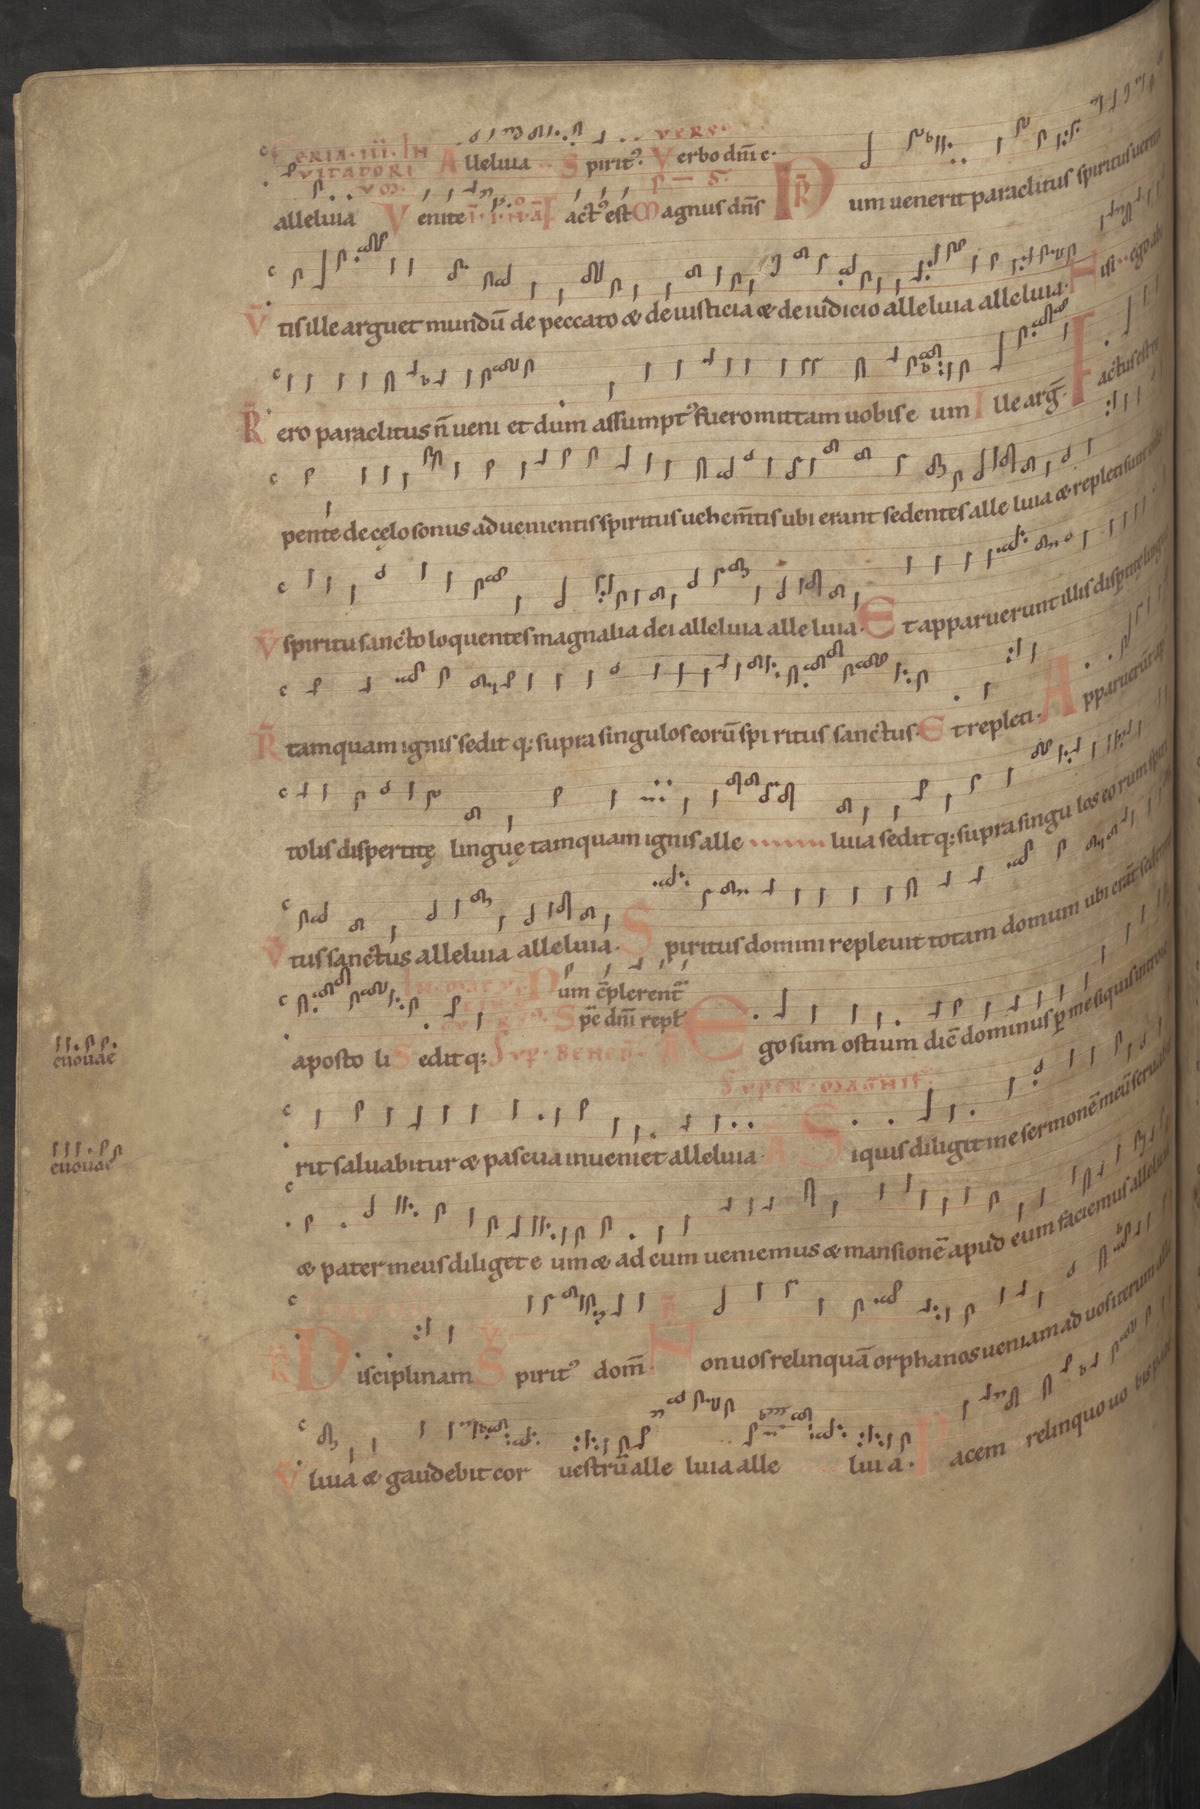 FERIA·III·IN Alleluia Spirit9. VERS9 Verbo dn̄i c·
VITATORI
alleluia Venite Fact9 est Magnus dn̄s R̄ Dum uenerit paraclitus spiritus uerita
V̄ tis ille arguet mundū de peccato & de iusticia & de iudicio alleluia alleluia. N isi ego abi
R̄ ero paraclitus n̄ ueni et dum assumpt9 fuero mittam uobis e um Ille arḡ Factus est re
pente de cęlo sonus aduenientis spiritus uehem̄tis ubi erant sedentes alle luia & repleti sunt
V̄ spiritu sancto loquentes magnalia dei alleluia alleluia. Et apparuerunt illis dispertitę linguę
R̄ tamquam ignis sedit q; supra singulos eorū spi ritus sanctus Et repleti. Apparuerūt ap
tolis dispertitę linguę tamquam ignis alle luia sedit q; supra singu los eo rum spiri
V̄ tus sanctus alleluia alleluia. Spiritus domini repleuit totam domum ubi erāt sedentes
Dum c̄plerent̄
Sp̄c dn̄i repl̄
aposto li Sedit q; SUP· BENED̄· Ā Ego sum ostium dic̄ dominus p me siquis introie
euouae
SUPER·MAGNIF̄
rit saluabitur & pascua inueniet alleluia Siquis diligit me sermonē meū seruabit
euouae
& pater meus diliget e um & ad eum ueniemus & mansionē apud eum faciemus alleluia
R̄ Disciplinam V̄ Spirit9 dom̄ Ā Non uos relinquā orphanos ueniam ad uos iterum alle
V̄ luia & gaudebit cor uestrū alle luia alle luia. Pacem relinquo uo bis pacem